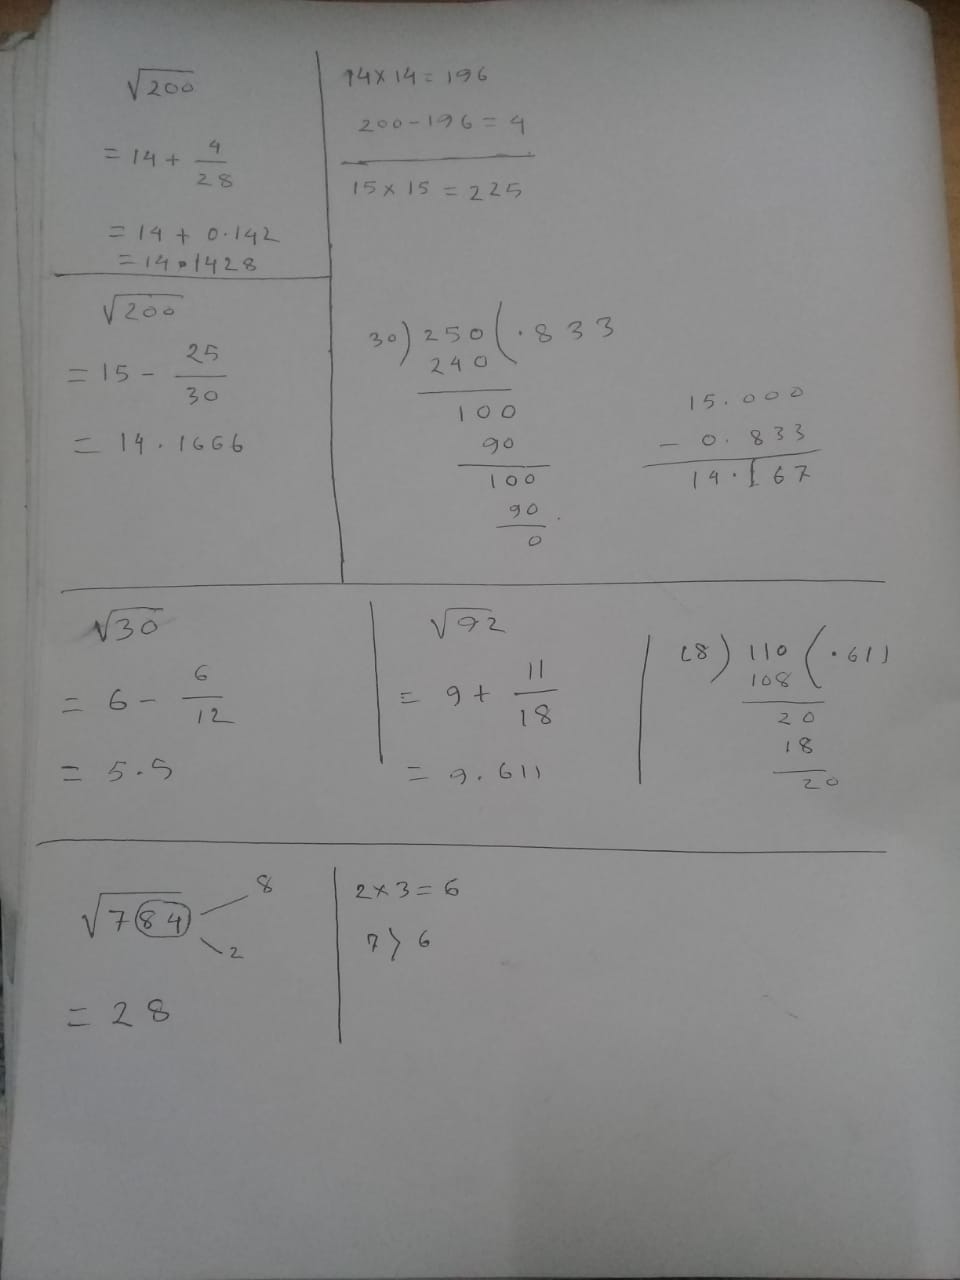 √200
= 14 + 4/28
= 14 + 0.142
= 14.1428
14 × 14 = 196
200 - 196 = 4
15 × 15 = 225
√200
= 15 - 25/30
= 14.1666
30) 250 (.833
240
100
90
100
90
0
15.000
- 0.833
14.167
√30
= 6 - 6/12
= 5.5
√92
= 9 + 11/18
= 9.611
18) 110 (.611
108
20
18
20
√784
8
2
= 28
2 × 3 = 6
7 > 6